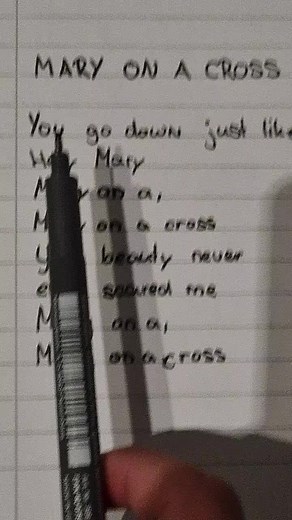 MARY ON A CROSS
You go down just like
Mary
on a,
on a cross
beauty never
scared me
on a,
on a cross